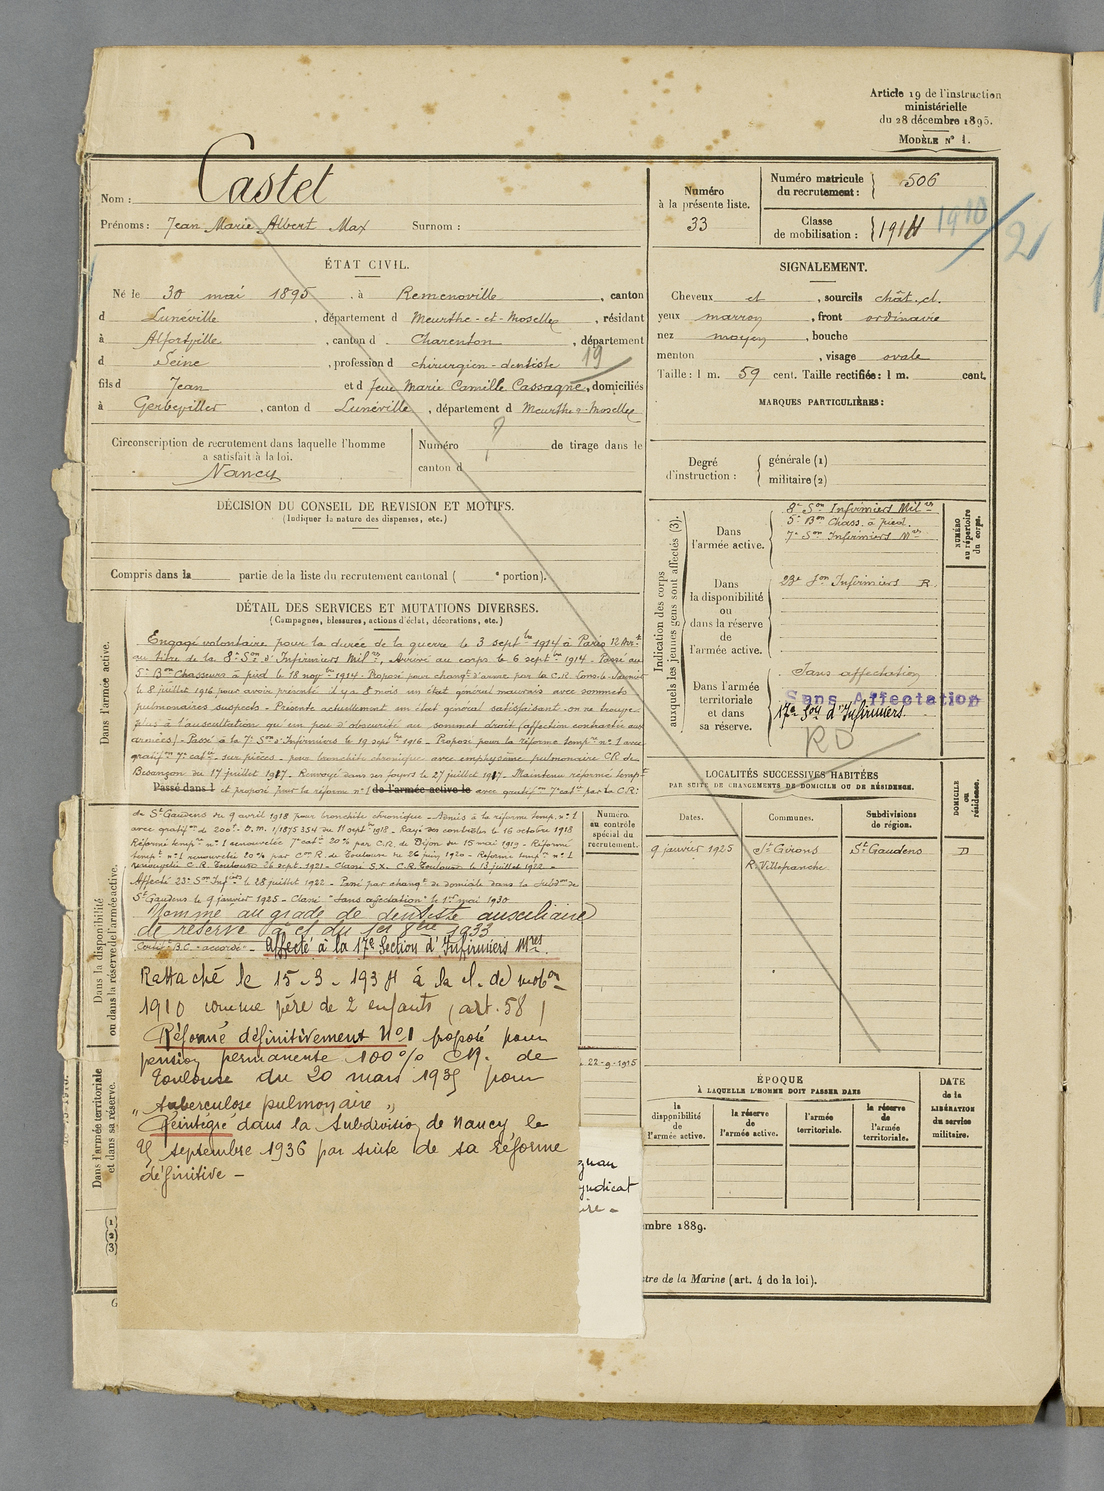 Article 19 de l'instruction
ministérielle
du 28 décembre 1895.
MODÈLE N° 1.
Nom : Castet
Prénoms : Jean Marie Albert Max Surnom :
Numéro
à la présente liste.
33
Numéro matricule
du recrutement : 506
Classe
de mobilisation : 1914 1910/2
ÉTAT CIVIL.
Né le 30 mai 1895, à Remenoville, canton
d Lunéville, département d Meurthe-et-Moselle, résidant
à Alfortville, canton d Charenton, département
d Seine, profession d chirurgien-dentiste 19
fils d Jean et d feue Marie Camille Cassagne, domiciliés
à Gerbeviller, canton d Lunéville, département d Meurthe-&-Moselle
SIGNALEMENT.
Cheveux et, sourcils chât. cl.
yeux marron, front ordinaire
nez moyen, bouche
menton, visage ovale
Taille : 1 m. 59 cent. Taille rectifiée : 1 m. cent.
MARQUES PARTICULIÈRES :
Circonscription de recrutement dans laquelle l'homme
a satisfait à la loi.
Nancy
Numéro de tirage dans le
canton d
Degré
d'instruction :
générale (1)
militaire (2)
DÉCISION DU CONSEIL DE REVISION ET MOTIFS.
(Indiquer la nature des dispenses, etc.)
Compris dans la partie de la liste du recrutement cantonal ( e portion).
Indication des corps
auxquels les jeunes gens sont affectés (3).
NUMÉRO
au répertoire
du corps.
Dans
l'armée active.
8e Son Infirmiers Milres
5e Bon Chass. à pied.
7e Son Infirmiers Mres
Dans
la disponibilité
ou
dans la réserve
de
l'armée active.
23e Son Infirmiers R.
Dans l'armée
territoriale
et dans
sa réserve.
Sans affectation
Sans Affectation
17e Son d'Infirmiers
RD
DÉTAIL DES SERVICES ET MUTATIONS DIVERSES.
(Campagnes, blessures, actions d'éclat, décorations, etc.)
Dans l'armée active.
Engagé volontaire pour la durée de la guerre le 3 septbre 1914 à Paris 12 Arrt
au titre de la 8e Son d'Infirmiers Milres, Arrivé au corps le 6 septbre 1914. Passé au
5e Bon Chasseurs à pied le 18 novbre 1914. Proposé pour changt d'arme par la C.R. Lons-le-Saunier
le 8 juillet 1916 pour avoir présenté il y a 8 mois un état général mauvais avec sommets
pulmonaires suspects - Présente actuellement un état général satisfaisant - on ne trouve
plus à l'auscultation qu'un peu d'obscurité au sommet droit (affection contractée aux
armées) - Passé à la 7e Son d'Infirmiers le 19 septbre 1916 - Proposé pour la réforme tempre n° 1 avec
gratifon 7e catie - sur pièces - pour bronchite chronique avec emphysème pulmonaire CR de
Besançon du 17 juillet 1917 - Renvoyé dans ses foyers le 27 juillet 1917 - Maintenu réformé tempre
Passé dans l et proposé pour la réforme n° 1 de l'armée active le avec gratifon 7e catie par la C.R.
Dans la disponibilité
ou dans la réserve de l'armée active.
de St Gaudens du 9 avril 1918 pour bronchite chronique - Admis à la réforme temp. n° 1
avec gratifon de 200f - D.M. 1/1875354 du 11 septbre 1918 - Rayé des contrôles le 16 octobre 1918
Réformé tempre n° 1 renouvelée 7e catie 20% par C.R. de Dijon du 15 mai 1919 - Réforme
tempre n° 1 renouvelée 20% par Con R. de Toulouse du 26 juin 1920 - Réforme tempre n° 1
renouvelée C.R. Toulouse 26 sept. 1921 - Classé S.X. C.R. Toulouse le 13 juillet 1922 -
Affecté 23e Son Infiers le 28 juillet 1922 - Passé par changt de domicile dans la Subdon de
St Gaudens le 9 janvier 1925 - Classé "sans affectation" le 1er mai 1930
Nommé au grade de dentiste auxiliaire
de réserve à cl du 1er 8bre 1933
B.C. "accordé" - Affecté à la 17e Section d'Infirmiers Mres
Rattaché le 15-3-1934 à la cl. de mobon
1910 comme père de 2 enfants (art. 58)
Réformé définitivement N° 1 proposé pour
pension permanente 100% CR. de
Toulouse du 20 mars 1935 pour
"Tuberculose pulmonaire"
Réintégré dans la Subdivision de Nancy le
25 septembre 1936 par suite de sa réforme
définitive -
Numéro
au contrôle
spécial du
recrutement.
22-9-1915
Dans l'armée territoriale
et dans sa réserve.
LOCALITÉS SUCCESSIVES HABITÉES
PAR SUITE DE CHANGEMENTS DE DOMICILE OU DE RÉSIDENCE.
Dates. Communes. Subdivisions
de région. DOMICILE
ou
résidence.
9 janvier 1925 St Girons St Gaudens D
R. Villefranche
ÉPOQUE
À LAQUELLE L'HOMME DOIT PASSER DANS
la
disponibilité
de
l'armée active.
la réserve
de
l'armée active.
l'armée
territoriale.
la réserve
de
l'armée
territoriale.
DATE
de la
LIBÉRATION
du service
militaire.
gnan
yndicat
ire -
mbre 1889.
stre de la Marine (art. 4 de la loi).
(1)
(2)
(3)